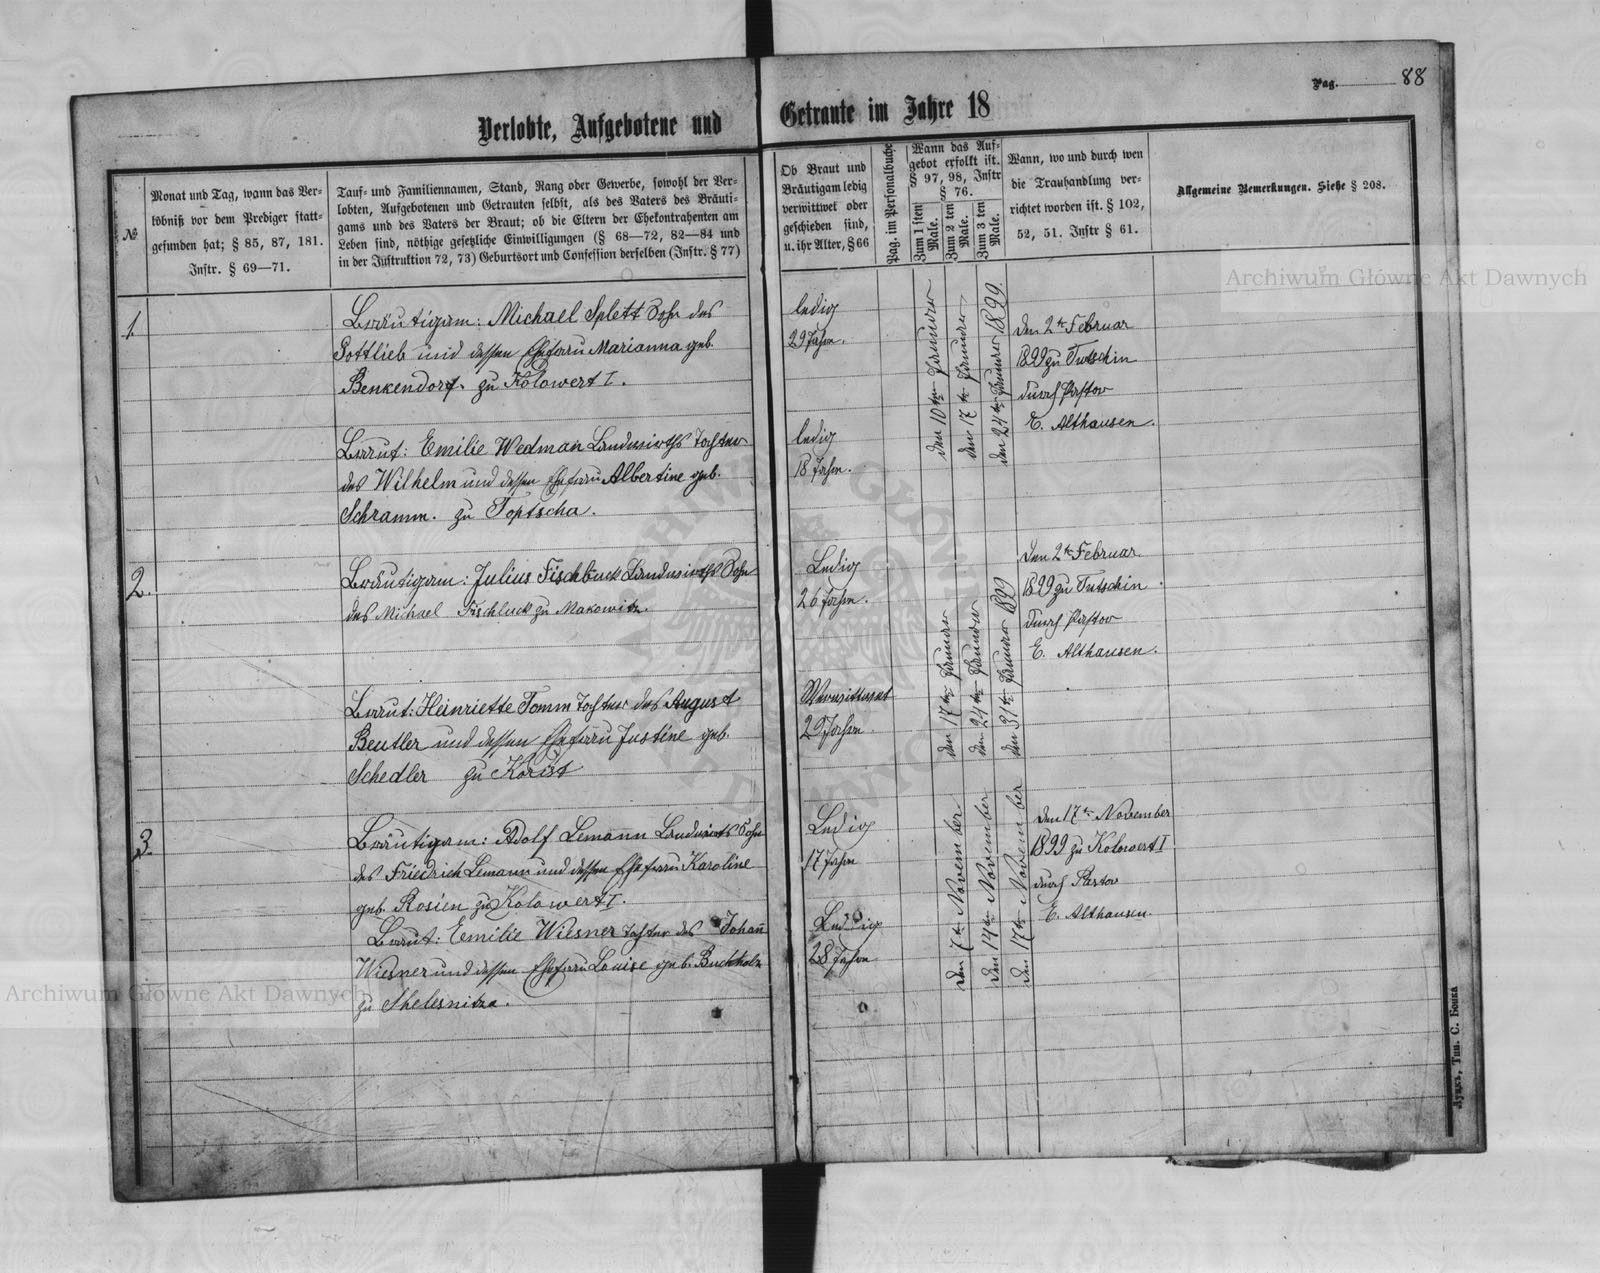 Pag. 88
Verlobte, Aufgebotene und Getraute im Jahre 18
№
Monat und Tag, wann das Ver-
löbniß vor dem Prediger statt-
gefunden hat; § 85, 87, 181.
Instr. § 69—71.
Tauf- und Familiennamen, Stand, Rang oder Gewerbe, sowohl der Ver-
lobten, Aufgebotenen und Getrauten selbst, als des Vaters des Bräuti-
gams und des Vaters der Braut; ob die Eltern der Ehekontrahenten am
Leben sind, nöthige gesetzliche Einwilligungen (§ 68—72, 82—84 und
in der Instruktion 72, 73) Geburtsort und Confession derselben (Instr. § 77)
Ob Braut und
Bräutigam ledig
verwittwet oder
geschieden sind,
u. ihr Alter, § 66
Pag. im Personalbuche
Wann das Auf-
gebot erfolkt ist.
§ 97, 98, Instr
§ 76.
Zum 1 sten Male.
Zum 2 ten Male.
Zum 3 ten Male.
Wann, wo und durch wen
die Trauhandlung ver-
richtet worden ist. § 102,
52, 51. Instr § 61.
Allgemeine Bemerkungen. Siehe § 208.
1.
Bräutigam: Michael Splett Sohn des
Gottlieb und dessen Ehefrau Marianna geb.
Benkendorf. zu Kolowert I.
Braut: Emilie Wedman Landwirths Tochter
des Wilhelm und dessen Ehefrau Albertine geb.
Schramm. zu Toptscha.
ledig
29 Jahre.
ledig
18 Jahre.
den 10ten Januar
den 17ten Januar
den 24ten Januar 1899
den 2ten Februar
1899 zu Tutschin
durch Pastor
E. Althausen.
2.
Bräutigam: Julius Landwirths Sohn
des Michael zu Makowitz.
Braut: Heinriette Tomm Tochter des August
Beutler und dessen Ehefrau Justine geb.
Schedler zu Korist
Ledig
26 Jahre.
Verwittwet
29 Jahre.
den 17ten Januar
den 24ten Januar
den 31ten Januar 1899
den 2ten Februar
1899 zu Tutschin
durch Pastor
E. Althausen.
3.
Bräutigam: Adolf Lemann Landwirts Sohn
des Friedrich Lemann und dessen Ehefrau Karoline
geb. Rosien zu Kolowert I.
Braut: Emilie Wiesner Tochter des Johan̄
Wiesner und dessen Ehefrau Louise geb. Buchholz
zu Shelesnitza.
Ledig
17 Jahre
Ledig
28 Jahre
den 7ten November
den 14ten November
den 17ten November
den 17ten November
1899 zu Kolowert I
durch Pastor
E. Althausen.
Луцкъ, Тип. С. Бонка
Archiwum Główne Akt Dawnych
Archiwum Główne Akt Dawnych
ARCHIWUM GŁÓWNE AKT DAWNYCH